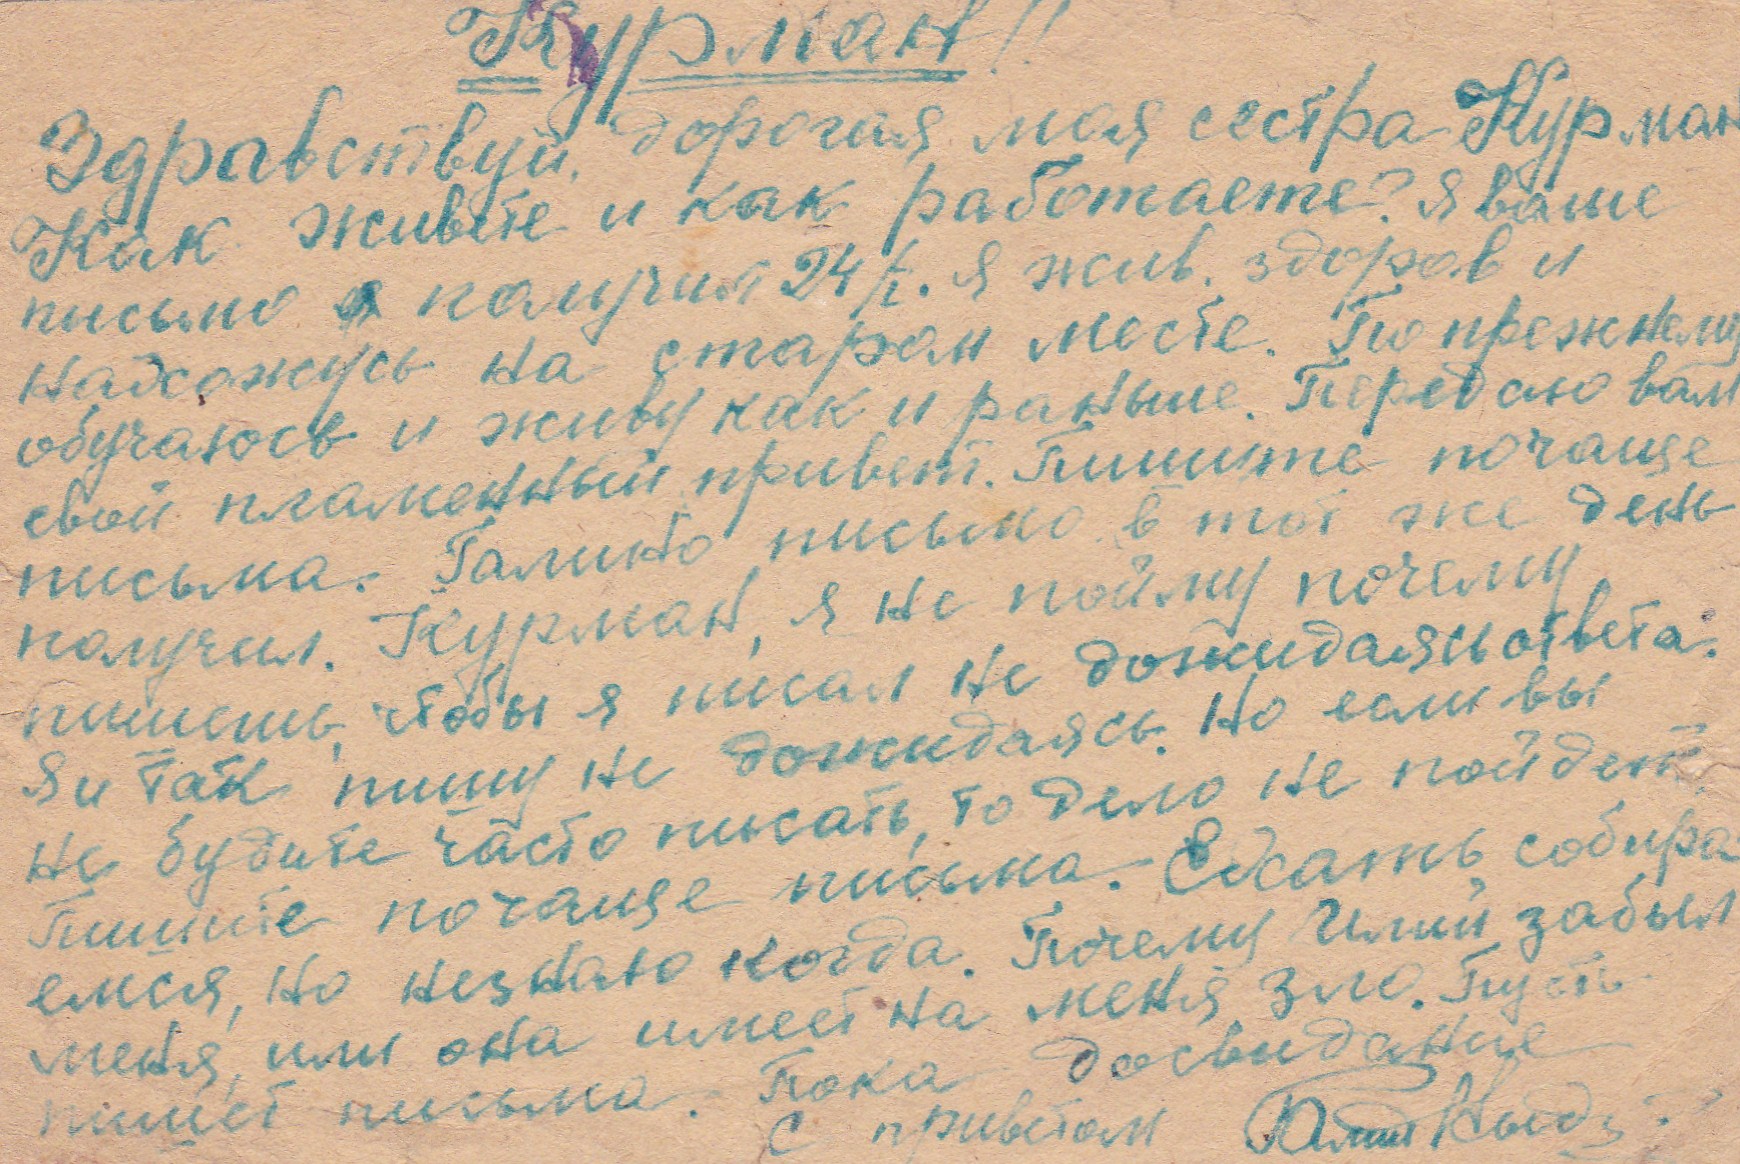 Курман!!
Здравствуй, дорогая моя сестра Курман
Как живете и как работаете? Я ваше
письмо я получил 24/I. Я жив. здоров и
надхожусь на старом месте. По прежнему
обучаюсь и живу как и раньше. Передаю вам
свой пламенный привет. Пишите почаще
письма. Галино письмо в тот же день
получил. Курман, я не пойму почему
пишешь, чтобы я писал не дожидаясь ответа.
Я и так пишу не дожидаясь. Но если вы
не будите часто писать, то дело не пойдет.
Пишите почаще письма. Ехать собира-
емся, но незнаю когда. Почему забыл
меня, или она имеет на меня зло. Пусть
пишет письма. Пока досвидание
С приветом